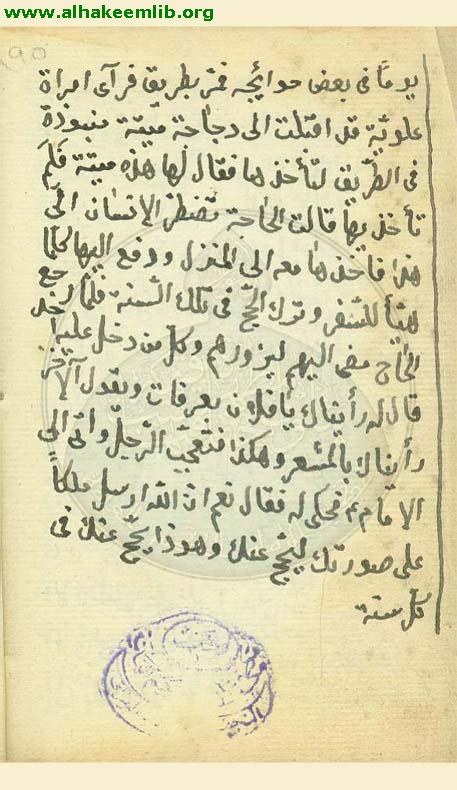 www.alhakeemlib.org
يوماً في بعض حوائجه فمر بطريق فرآى امراة
علوية قد اقبلت الى دجاجة ميتة منبوذة
في الطريق لتأخذها فقال لها هذه ميتة فلم
تأخذيها قالت الحاجة تضطر الانسان الى
هذا فاخذها معه الى المنزل ودفع اليها كلما
هيأ للسفر وترك الحج في تلك السنة فلما رجع
الحاج مضى اليهم ليزورهم وكل من دخل عليه
قال له رأيناك يا فلان بعرفات ويقول الآخر
رأيناك بالمشعر وهكذا فتعجب الرجل واتى الى
الامام ع فحكى له فقال نعم ان الله ارسل ملكاً
على صورتك ليحج عنك وهوذا يحج عنك في
كل سنة